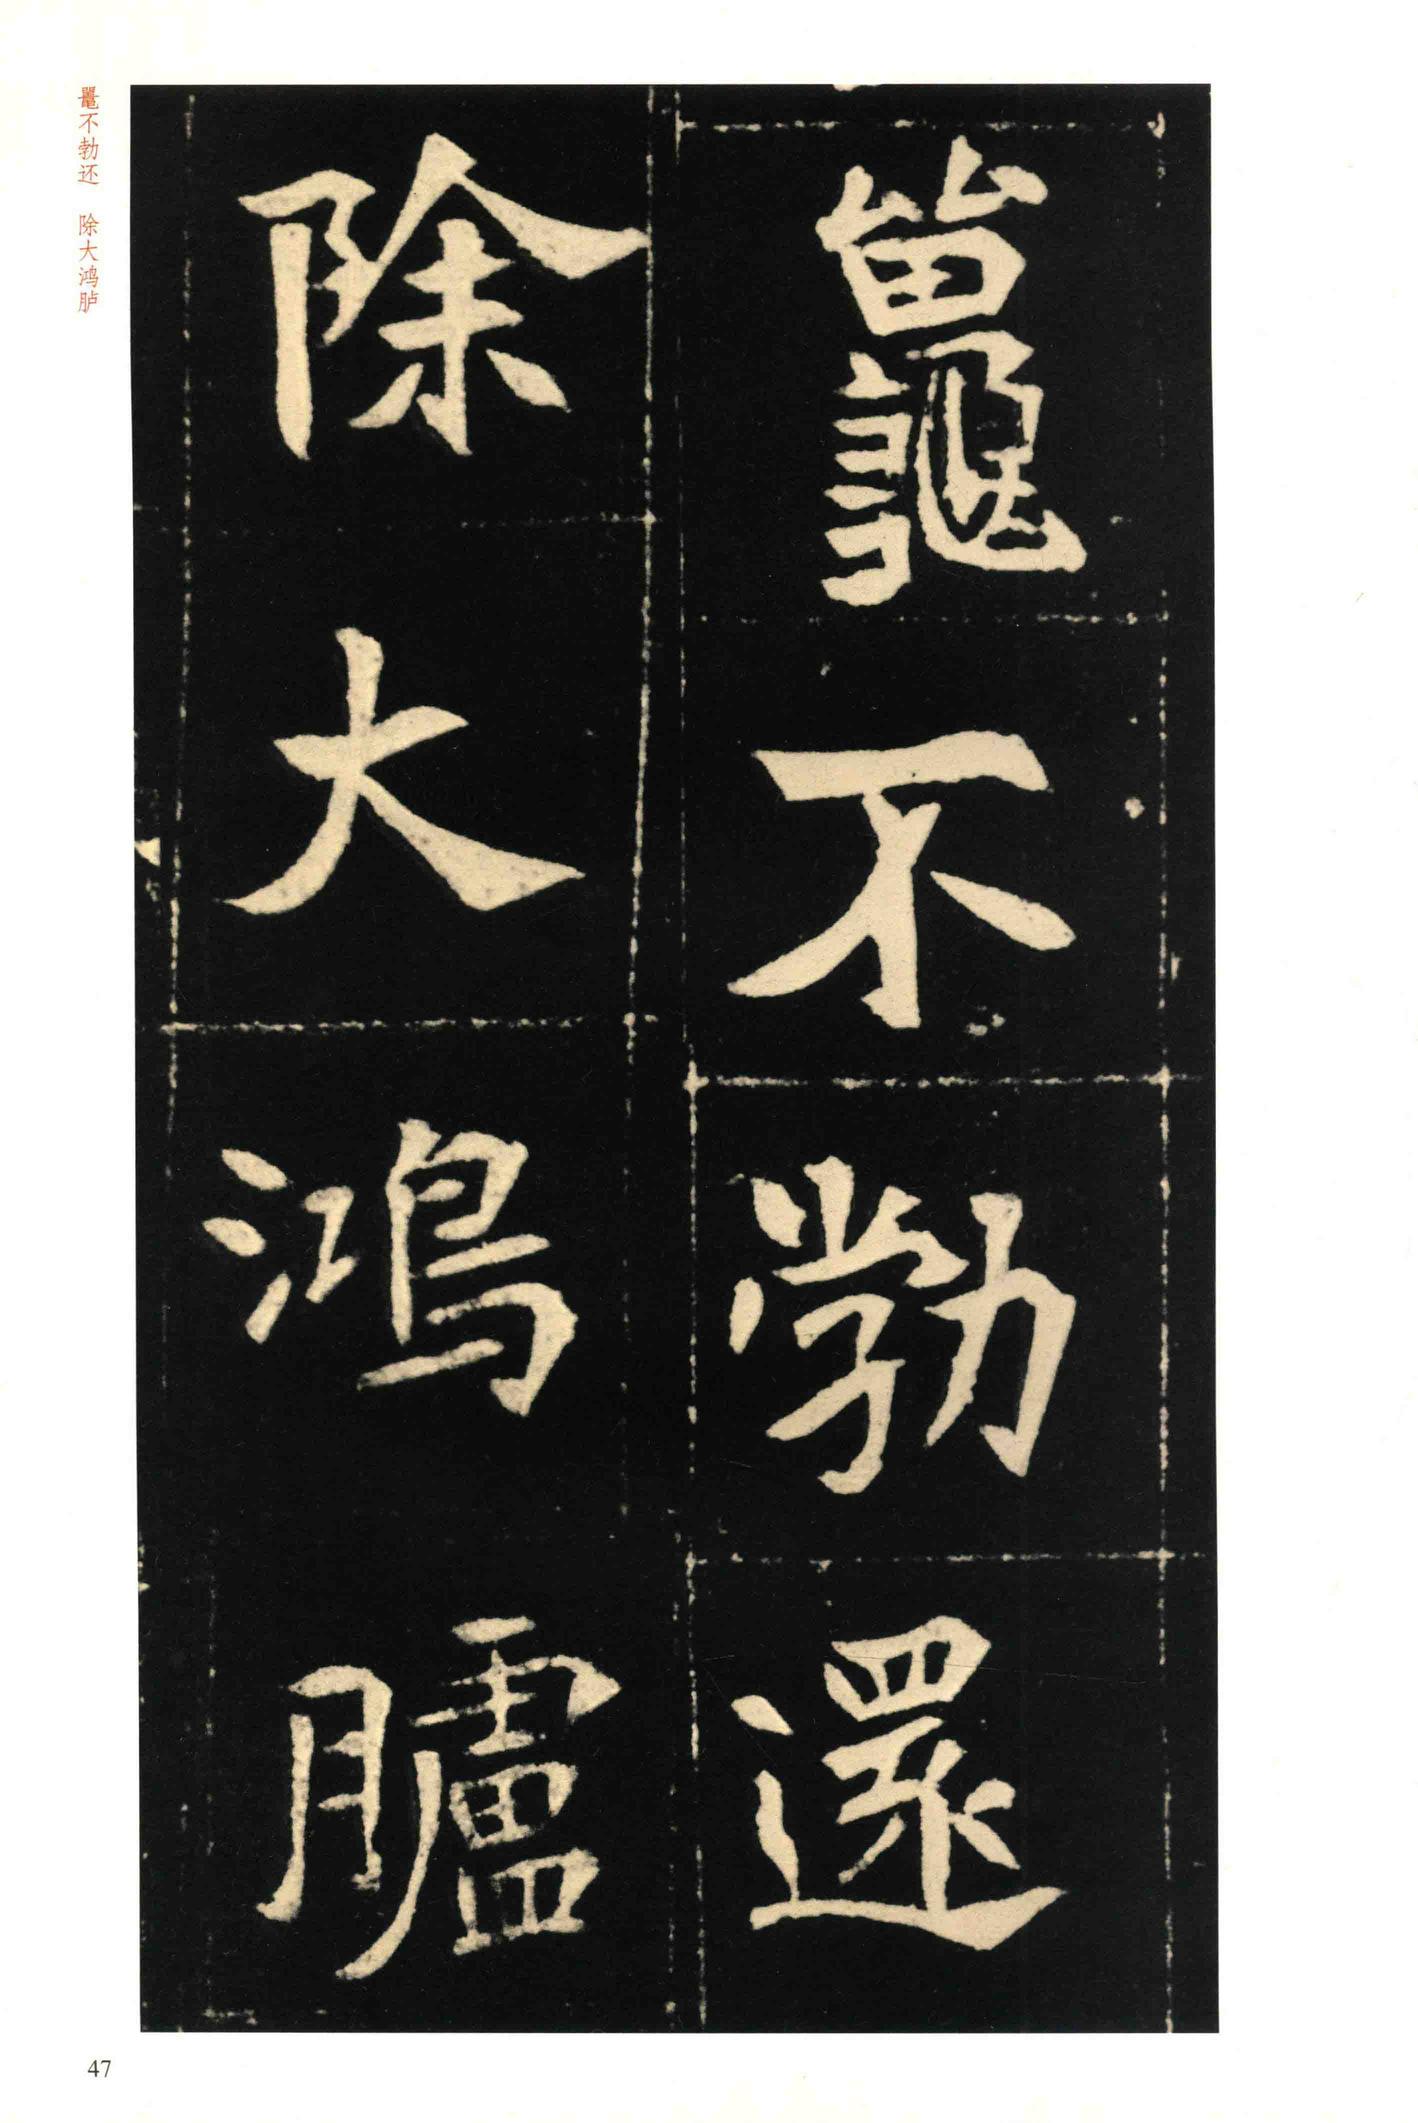 鼉不勃還
除大鴻臚
鼍不勃还 除大鸿胪
47